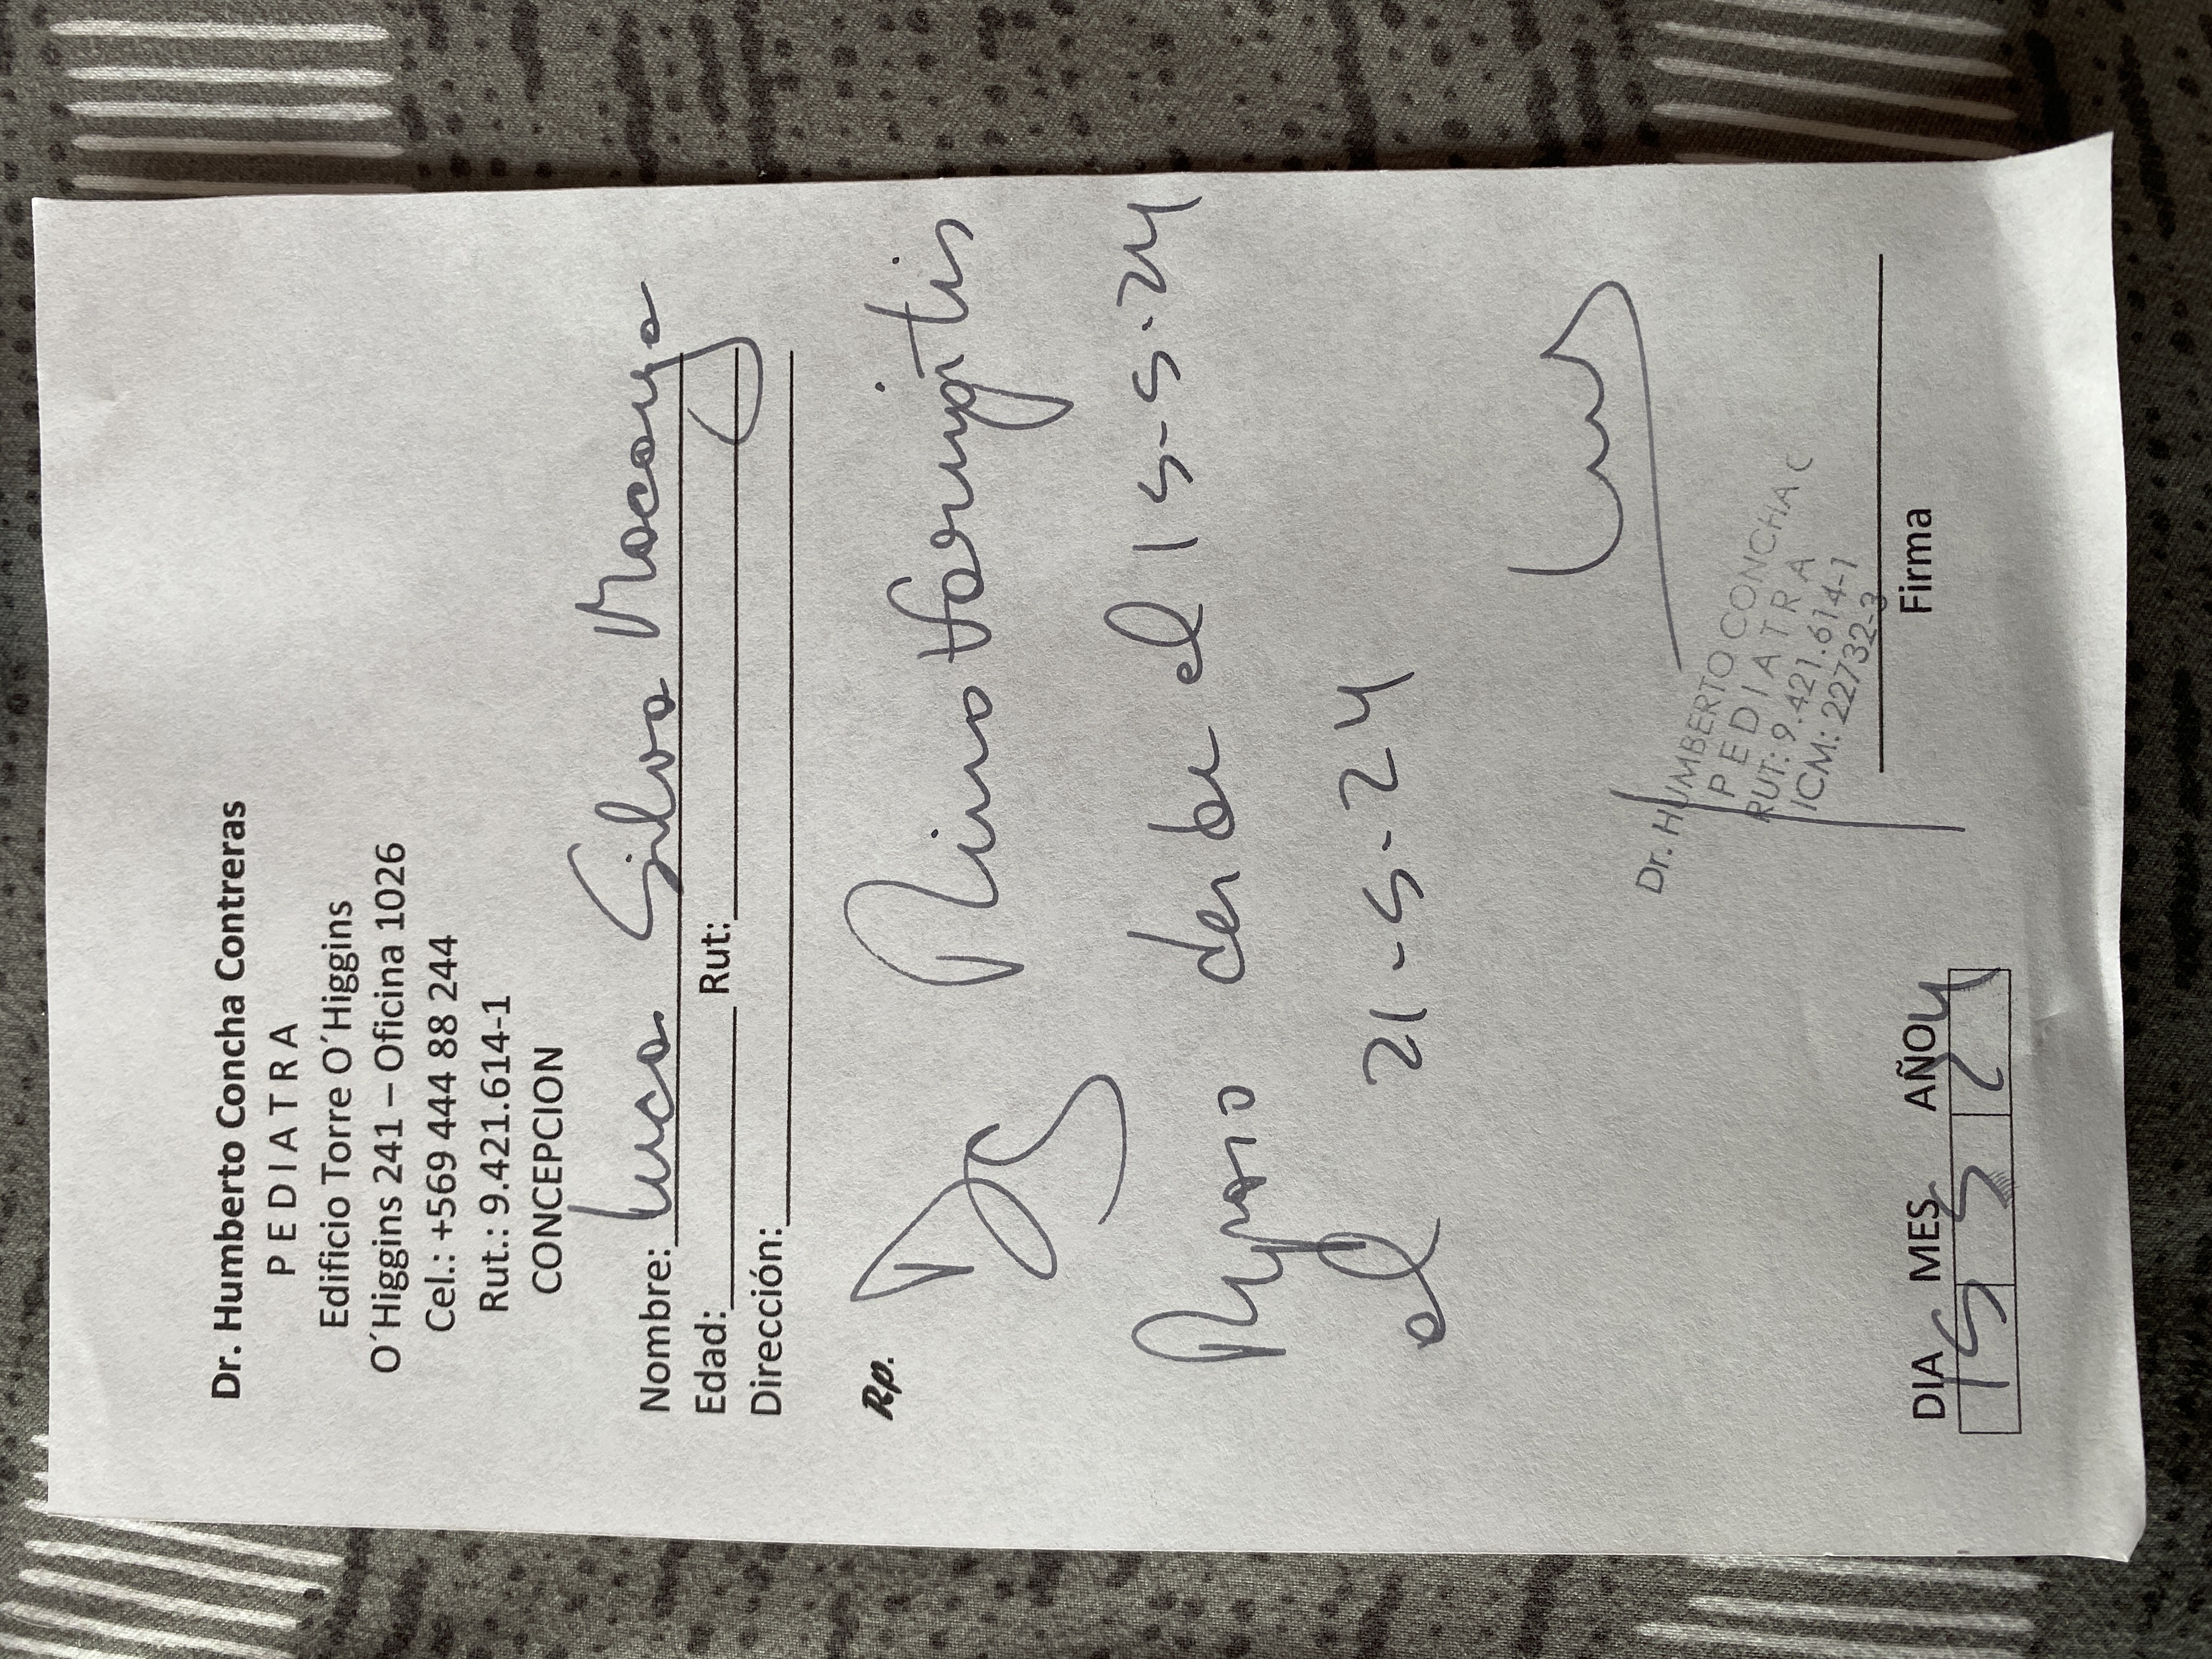 Dr. Humberto Concha Contreras
PEDIATRA
Edificio Torre O´Higgins
O´Higgins 241 – Oficina 1026
Cel.: +569 444 88 244
Rut.: 9.421.614-1
CONCEPCION
Nombre: Lucas Silva
Edad: Rut:
Dirección:
Rp.
DG Rinofaringitis
Reposo desde el 15-5-24
el 21-5-24
Dr. HUMBERTO CONCHA C
PEDIATRA
RUT: 9.421.614-1
ICM: 22732-3
Firma
DIA MES AÑO
15 5 24